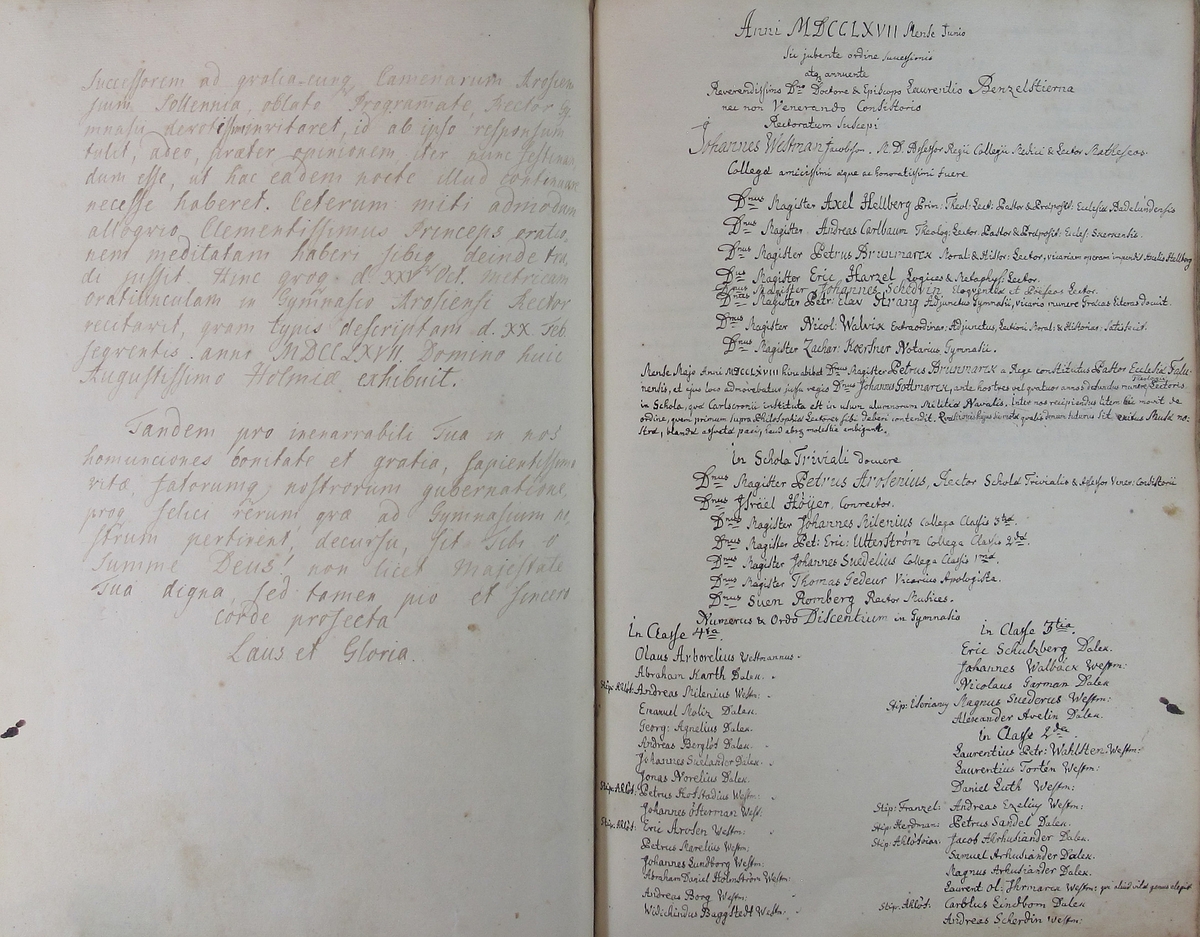 Successorem ad gratia-cunq Camenarum Arosien
sium Sollennia, oblato Programate, Rector Gy-
mnasii devotissim invitaret, id ab ipso responsum
tulit, adeo, præter opinionem, iter nunc festinan-
dum esse, ut hac eadem nocte illud continuare
necesse haberet. Ceterum miti admodum
alloqvio Clementissimus Princeps oratio-
nem meditatam haberi sibiq deinde tra-
di jussit. Hinc qvoq d. XXV Oct. metricam
oratiunculam in Gymnasio Arosiensi Rector
recitavit, qvam typis descriptam d. XX Feb.
seqventis anni MDCCLXVII. Domino huic
Augustissimo Holmiæ exhibuit.
Tandem pro inenarrabili Tua in nos
homunciones bonitate et gratia, sapientissima
vitæ, fatorumq nostrorum gubernatione,
proq felici rerum qvæ ad Gymnasium no-
strum pertinent, decursu, sit Tibi o
Summe Deus! non licet Majestate
Tua digna, sed tamen pio et sincero
corde profecta
Laus et Gloria.
Anni MDCCLXVII Mense Junio
Sic jubente ordine successionis
atq annuente
Reverendissimo Dno Doctore & Episcopo Laurentio Benzelstierna
nec non Venerando Consistorio
Rectoratum suscepi
Johannes Westman Jacobson. M.D. Assessor Regii Collegii Medici & Lector Matheseos.
Collegæ amicissimi æque ac honoratissimi fuere
Dnus Magister Axel Hellberg Prim: Theol: Lect: Pastor & Præposit: Ecclesiæ Badelundensis
Dnus Magister. Andreas Carlbaum Theolog: Lector. Pastor & Præposit: Eccles:
Dnus Magister Petrus Brunnmarck Moral: & Histor: Lector, vicariam operam Axelii Hellberg
Dnus Magister Eric Harzel Logices & Metaphys: Lector.
Dnus Magister Johannes Schedvin Eloqventiæ et Poëseos Lector.
Dnus Magister Petr: Elav Strang Adjunctus Gymnasii, vicario munere Græcas literas docuit.
Dnus Magister Nicol: Walvik Extraordinar: Adjunctus, Lectioni Moral: & Historiar: satisfecit.
Dnus Magister Zachar: Koersner Notarius Gymnasii.
Mense Majo Anni MDCCLXVIII huic abiit Dnus Magister Petrus Brunnmarck a Rege constitutus Pastor Ecclesiæ Falu-
nensis, et ejus loco admovebatur jussu regis Dnus Johannes Gottmarck, ante hos tres vel qvatuor annos defunctus munere Theologiæ Lectoris
in Schola, qvæ Carlscronii instituta est in usum alumnorum Militiæ Navalis. Inter nos recipiendus litem hic movit de
ordine, qvem primum supra Philosophiæ Lectores sibi deberi contendit.
In Schola Triviali docuere
Dnus Magister Petrus Arosenius, Rector Scholæ Trivialis & Assessor Vener: Consistorii
Dnus Israël Höijer, Conrector.
Dnus Magister Johannes Milenius Collega Classis 3tiæ.
Dnus Magister Pet: Eric: Utterström Collega Classis 2dæ.
Dnus Magister Johannes Suedelius Collega Classis 1mæ.
Dnus Magister Thomas Gedeur Vicarius Apologista.
Dnus Suen Romberg Rector Musices.
Numerus & Ordo Discentium in Gymnasio
In Classe 4ta.
Olaus Arborelius Westmannus.
Abraham Karth Dalek.
Stip: Ahlöt: Andreas Milenius Westm:
Emanuel Moliz Dalek.
Georg: Agnelius Dalek.
Andreas Berglöt Dalek.
Johannes Suelander Dalek.
Jonas Norelius Dalek.
Stip: Ahlöt: Petrus Hofstadius Westm:
Johannes Österman West:
Stip: Ahlöt: Eric Arosen Westm:
Petrus Marelius Westm:
Johannes Lundborg Westm:
Abraham Daniel Holmström Westm:
Andreas Borg Westm:
Widichindus Baggstedt Westm:
In Classe 3tia.
Eric Schulzberg Dalek.
Johannes Walback Westm:
Nicolaus Garman Dalek.
Magnus Suederus Westm:
Alexander Avelin Dalek.
In Classe 2da
Laurentius Petr: Wahlsten Westm:
Laurentius Tortén Westm:
Daniel Luth Westm:
Stip: Franzel: Andreas Exelius Westm:
Stip: Herdman: Petrus Sandel Dalek.
Jacob Akrhusiander Dalek.
Samuel Arhusiander Dalek.
Magnus Arhusiander Dalek.
Laurent: Ol: Ihrmarck Westm: qvi aliud vitæ genus elegit
Stip: Ahlöt: Carolus Lindbom Dalek
Andreas Scherdin Westm: